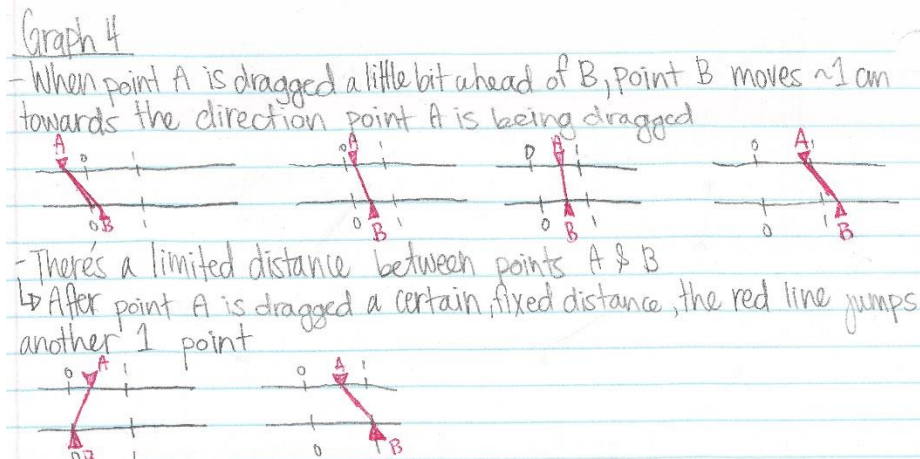 Graph 4
- When point A is dragged a little bit ahead of B, point B moves ~1 cm
towards the direction point A is being dragged
A 0 1
0 B 1
0 A 1
0 B 1
0 A 1
0 B 1
0 A 1
0 1 B
- There's a limited distance between points A & B
↳ After point A is dragged a certain, fixed distance, the red line jumps
another 1 point
0 A 1
0 B 1
0 A 1
0 B